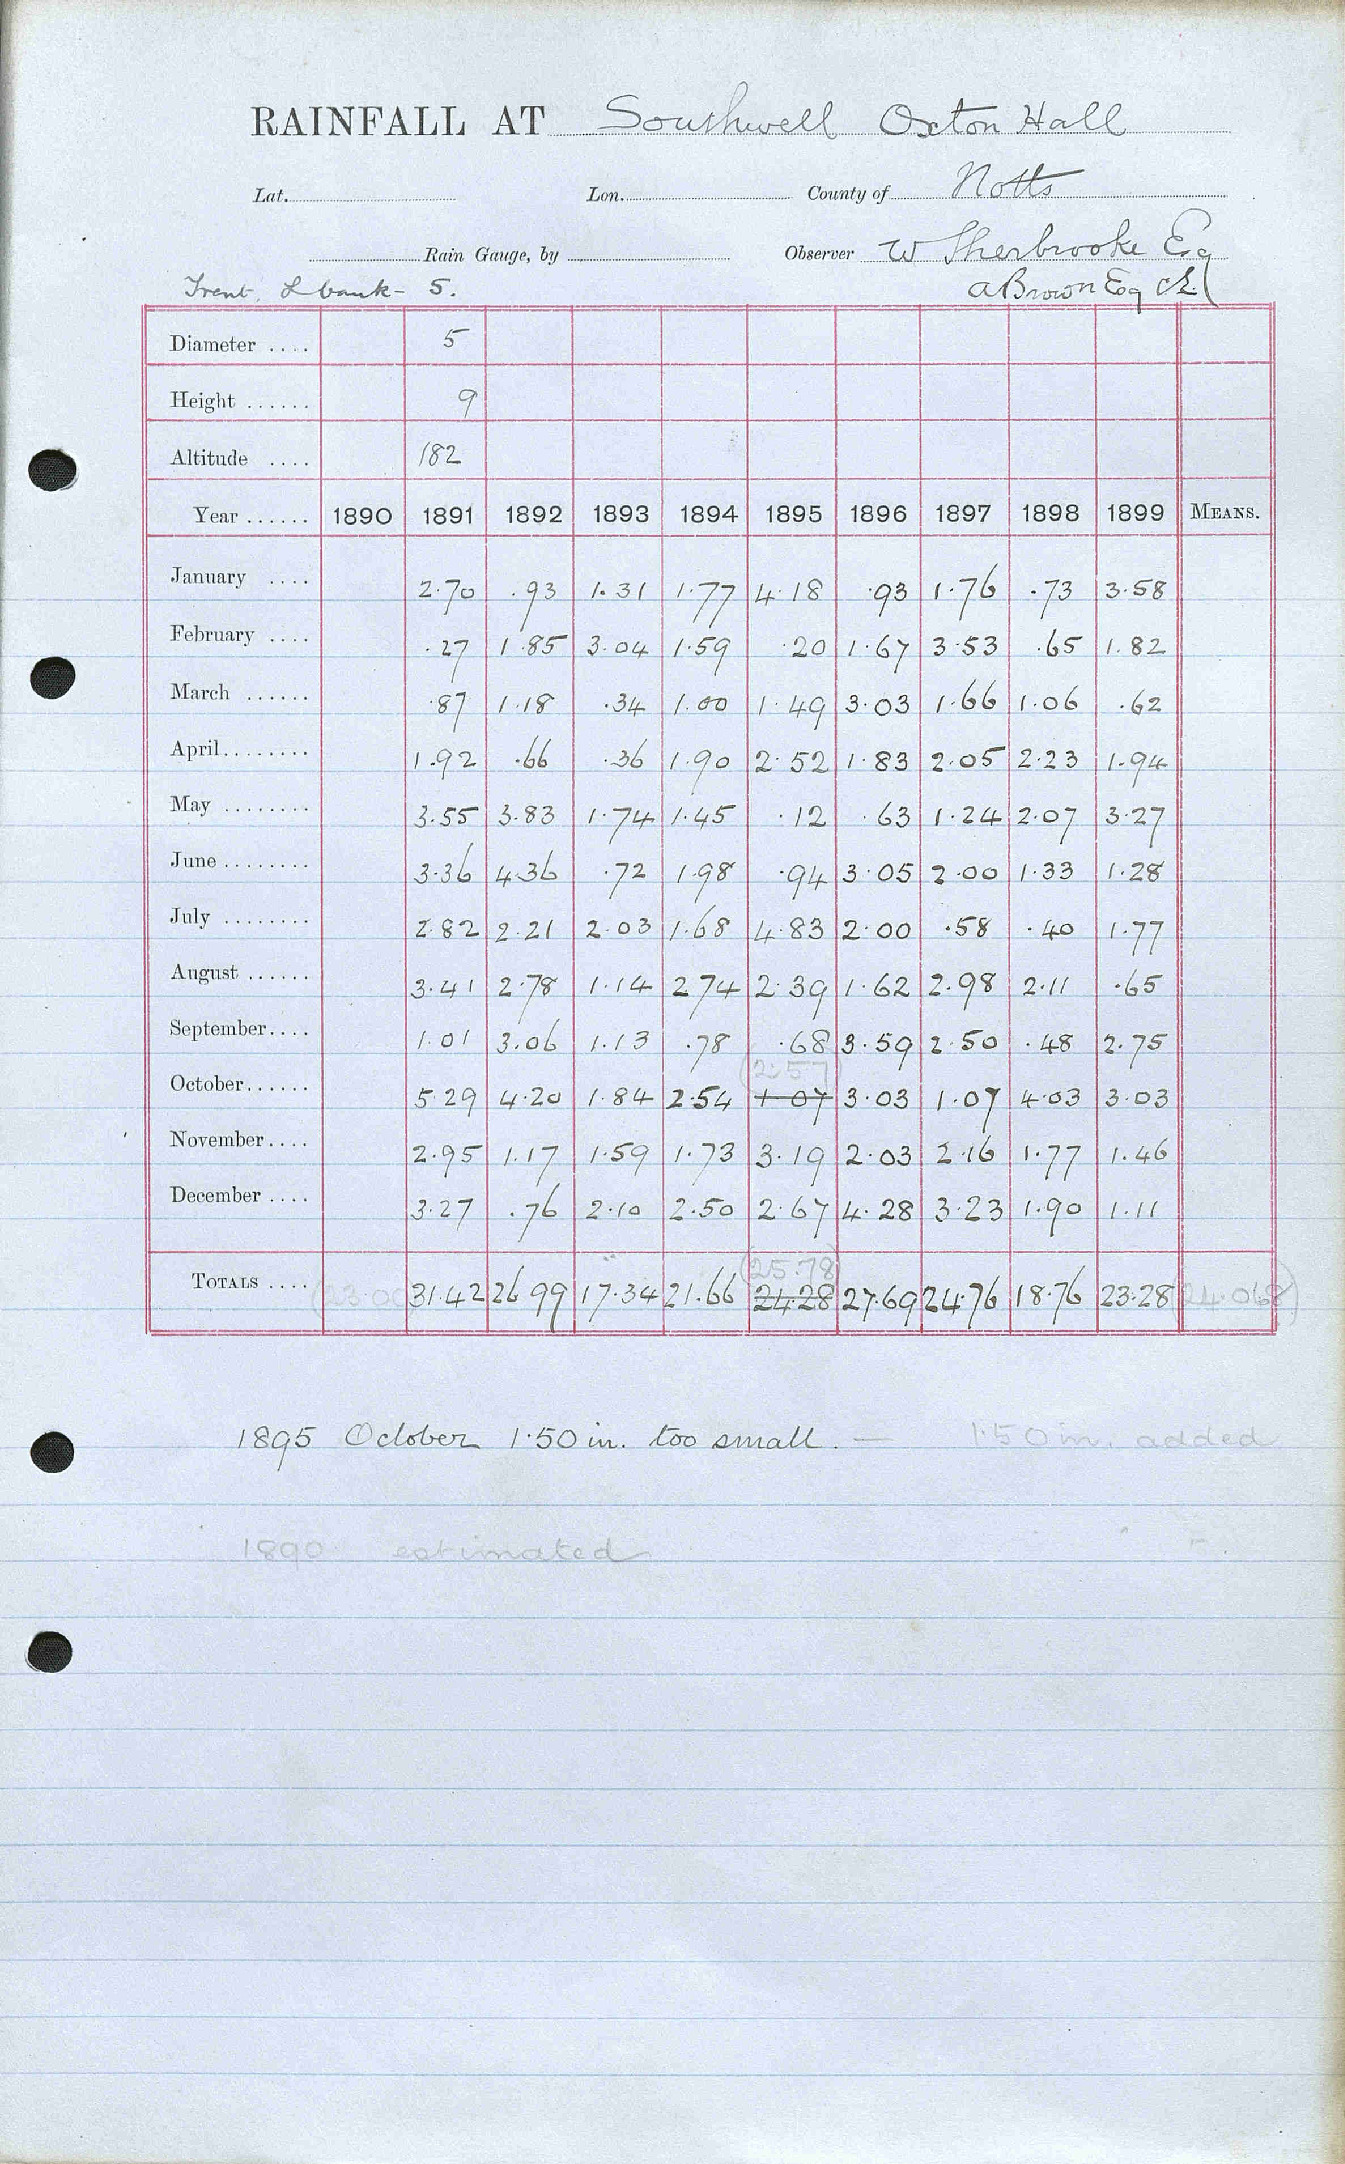 RAINFALL AT Southwell Oxton Hall
Lat. Lon. County of Notts
Rain Gauge, by Observer W Sherbrooke Esq
Trent, L bank - 5. A Brown Esq
Diameter .... 5
Height ...... 9
Altitude .... 182
Year ...... 1890 1891 1892 1893 1894 1895 1896 1897 1898 1899 MEANS.
January .... 2.70 .93 1.31 1.77 4.18 .93 1.76 .73 3.58
February .... .27 1.85 3.04 1.59 .20 1.67 3.53 .65 1.82
March ...... .87 1.18 .34 1.00 1.49 3.03 1.66 1.06 .62
April........ 1.92 .66 .36 1.90 2.52 1.83 2.05 2.23 1.94
May ........ 3.55 3.83 1.74 1.45 .12 .63 1.24 2.07 3.27
June ........ 3.36 4.36 .72 1.98 .94 3.05 2.00 1.33 1.28
July ........ 2.82 2.21 2.03 1.68 4.83 2.00 .58 .40 1.77
August ...... 3.41 2.78 1.14 2.74 2.39 1.62 2.98 2.11 .65
September.... 1.01 3.06 1.13 .78 .68 3.59 2.50 .48 2.75
(2.57)
October...... 5.29 4.20 1.84 2.54 1.07 3.03 1.07 4.03 3.03
November.... 2.95 1.17 1.59 1.73 3.19 2.03 2.16 1.77 1.46
December .... 3.27 .76 2.10 2.50 2.67 4.28 3.23 1.90 1.11
(25.78)
TOTALS .... (23.00) 31.42 26 99 17.34 21.66 24.28 27.69 24.76 18.76 23.28 (24.068)
1895 October 1.50 in. too small. — 1.50 in. added
1890 estimated